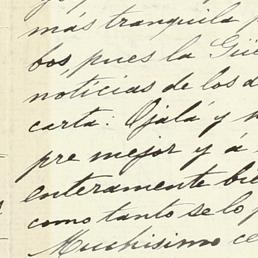 más tranquila
bos, pues la Güe
noticias de los d
carta: Ojalá y
pre mejor y á
enteramente bie
como tanto se lo p
Muchísimo ce